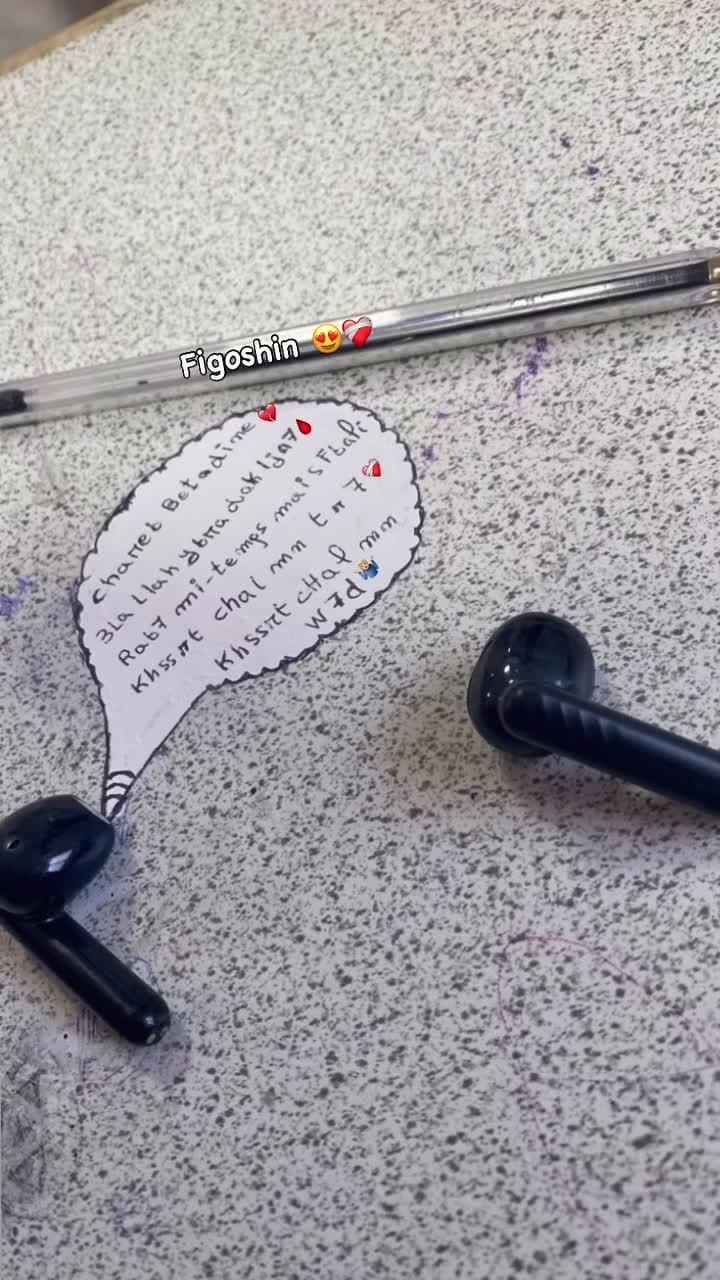 Figoshin 😍❤️‍🩹
Chareb Betadine 💔
3La Llah ybrra dak ljar7 🩸
Rab7 mi-temps mais Ftali
Khssrt chal mn t r 7 ❤️‍🩹
Khssrt cHal mn
w7d 🤷🏼‍♂️